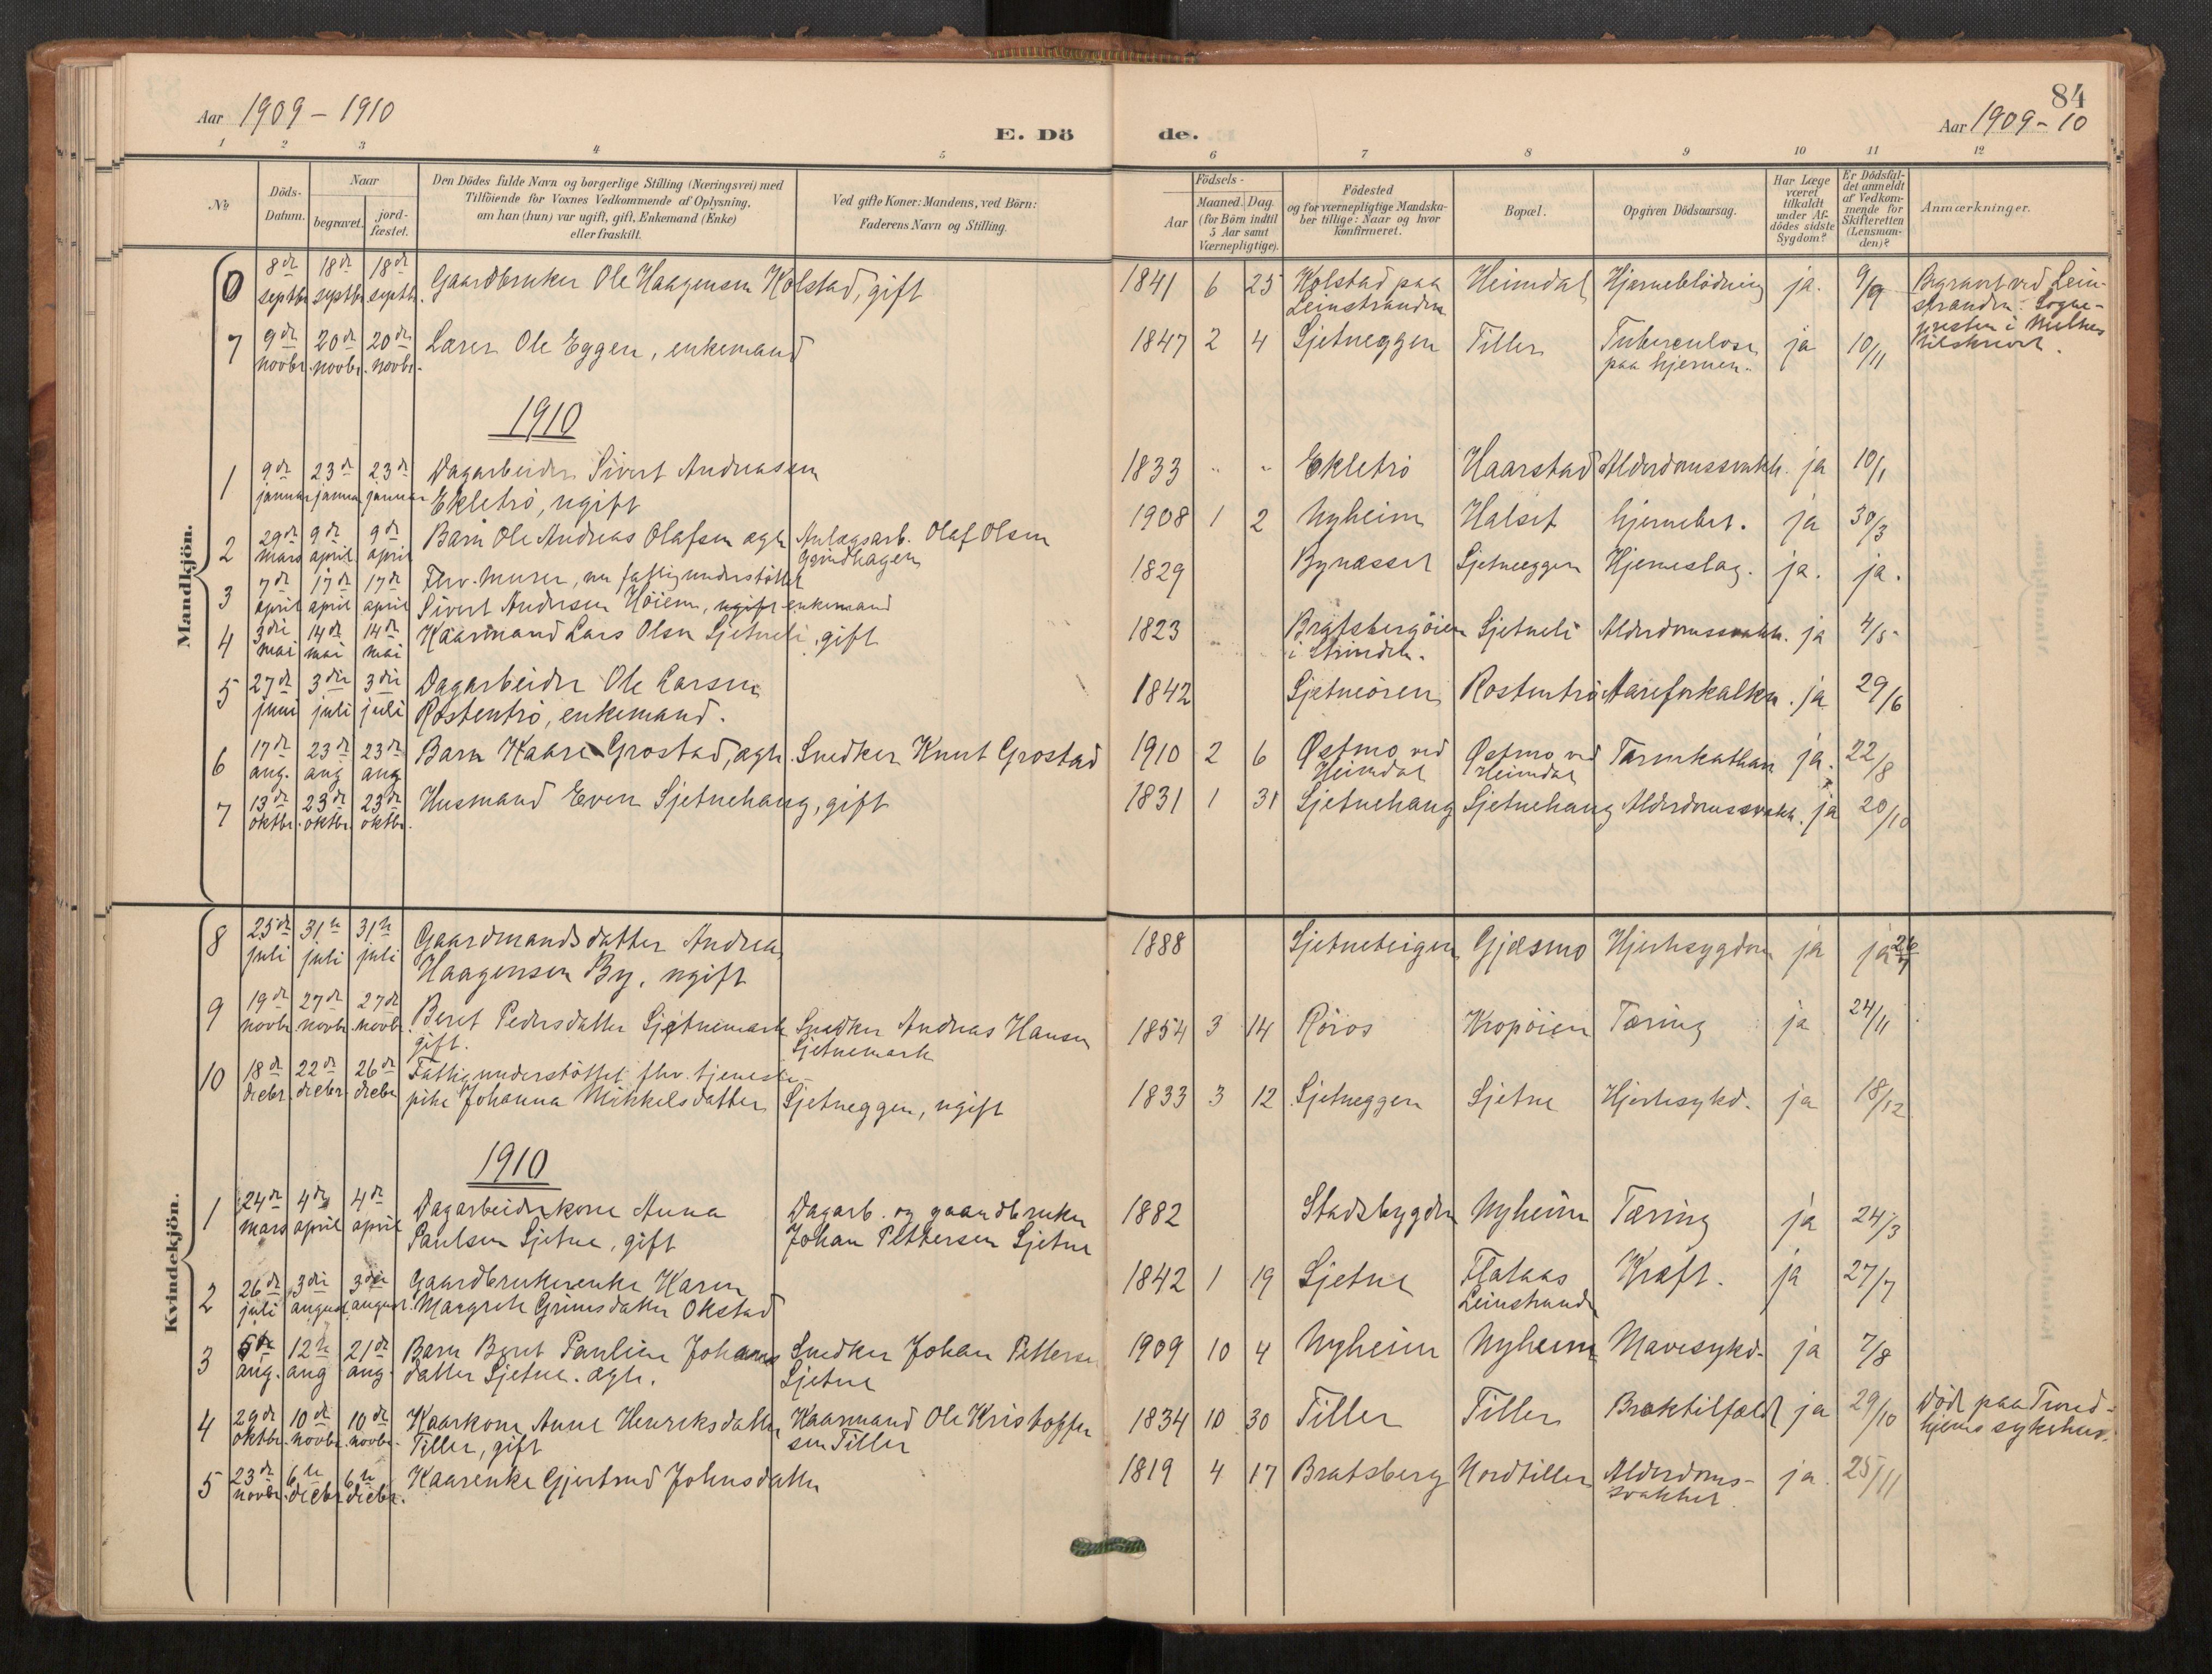 84
Aar 1909 - 1910
E. Dö de.
Aar 1909 - 10
1 2 3 4 5 6 7 8 9 10 11 12
No
Döds-Datum.
Naar
begravet.
jord-fæstet.
Den Dödes fulde Navn og borgerlige Stilling (Næringsvei) med
Tilföiende for Voxnes Vedkommende af Oplysning,
om han (hun) var ugift, gift, Enkemand (Enke)
eller fraskilt.
Ved gifte Koner: Mandens, ved Börn:
Faderens Navn og Stilling.
Födsels-
Aar
Maaned. Dag.
(for Börn indtil
5 Aar samt
Værnepligtige).
Födested
og for værnepligtige Mandska-
ber tillige: Naar og hvor
konfirmeret.
Bopæl.
Opgiven Dödsaarsag.
Har Læge
været
tilkaldt
under Af-
dödes sidste
Sygdom?
Er Dödsfal-
det anmeldt
af Vedkom-
mende for
Skifteretten
(Lensman-
den)?
Anmærkninger.
Mandkjön.
8de septbr 18de septbr 18de septb. Gaardbruker Ole Haagensen Kolstad, gift 1841 6 25 Kolstad paa Leinstranden Heimdal Hjerneblödning ja. 9/9 Begravet ved Lein-
stranden. Sogne-
presten i Melhus
tilskrevet.
7 9de novbr. 20de novbr. 20de novbr. Lærer Ole Eggen, enkemand 1847 2 4 Sjetneggen Tiller Tuberculose paa hjernen. ja 10/11
1910
1 9de januar 23de januar 23de januar Dagarbeider Sivert Andreassen
Ekletrö, ugift 1833 " " Ekletrö Haarstad Alderdomssvakh. ja 10/1
2 29de mars 9de april 9de april Barn Ole Andreas Olafsen ægte Anlægsarb. Olaf Olsen
Grindhagen 1908 1 2 Nyheim Halset hjernebet. ja 30/3
3 7de april 17de april 17de april Fhv. murer, nu fattigunderstöttet
Sivert Andersen Höiem, ugift enkemand 1829 Bynæsset Sjetneggen Hjerneslag. ja. ja.
4 3die mai 14de mai 14de mai Kaarmand Lars Olsen Sjetneli, gift 1823 Bratsbergöien i Strinden. Sjetneli Alderdomssvakh. ja 4/5
5 27de juni 3die juli 3die juli Dagarbeider Ole Larsen
Rostentrö, enkemand. 1842 Sjetneören Rostentrö Aareforkalkn. ja 29/6
6 17de aug. 23de aug 23de aug Barn Kaare Grostad, ægte. Snedker Knut Grostad 1910 2 6 Østmo ved Heimdal Østmo ved Heimdal Tarmkathar ja. 22/8
7 13de oktbr. 23de oktbr. 23de oktbr. Husmand Even Sjetnehaug, gift 1831 1 31 Sjetnehaug Sjetnehaug Alderdomssvakh. ja 20/10
Kvindekjön.
8 25de juli 31te juli 31te juli Gaardmandsdatter Andrea
Haagensen By, ugift 1888 Sjetneteigen Gjæsmo Hjertesygdom ja ja 26/7
9 19de novbr. 27de novbr. 27de novbr. Beret Pedersdatter Sjetnemark
gift. Snedker Andreas Hansen
Sjetnemark 1854 3 14 Röros Kropöien Tæring ja 24/11
10 18de decbr. 22de decbr. 26de decbr Fattigunderstöttet fhv. tjeneste-
pike Johanna Mikkelsdatter Sjetneggen, ugift 1833 3 12 Sjetneggen Sjetne Hjertesykd. ja 18/12
1910
1 24de mars 4de april 4de april Dagarbeiderkone Anna
Paulsen Sjetne, gift Dagarb. og gaardbruker
Johan Pettersen Sjetne 1882 Stadsbygden Nyheim Tæring ja 24/3
2 26de juli 3die august 3die august Gaardbrukerenke Karen
Margrete Grimsdatter Okstad 1842 1 19 Sjetne Flataas Leinstranden Kræft. ja 27/7
3 5te aug. 12te aug 21de aug. Barn Beret Pauline Johans
datter Sjetne. ægte. Snedker Johan Pettersen
Sjetne 1909 10 4 Nyheim Nyheim Mavesykd. ja 7/8
4 29de oktbr. 10de novbr. 10de novbr. Kaarkone Anne Henriksdatter
Tiller, gift Kaarmand Ole Kristoffer
sen Tiller 1834 10 30 Tiller Tiller Braktilfæld ja 29/10 Död paa Trond-
hjems sykehus.
5 23de novbr. 6te decbr. 6te decbr. Kaarenke Gjertrud Johnsdatter 1819 4 17 Bratsberg Nordtiller Alderdoms-
svakhet. ja. 25/11